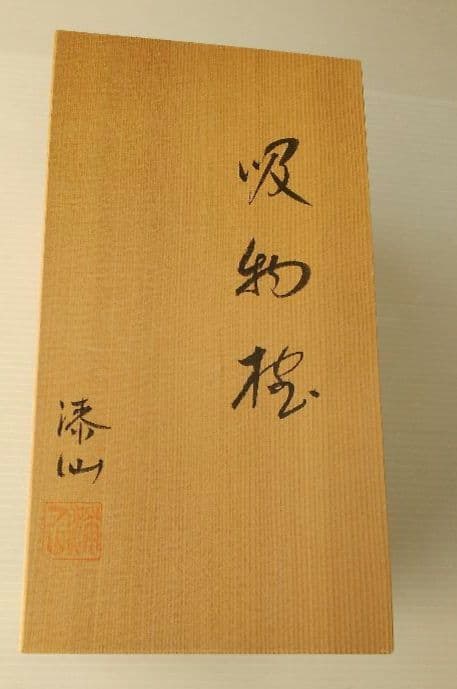 吸物椀
漆仙